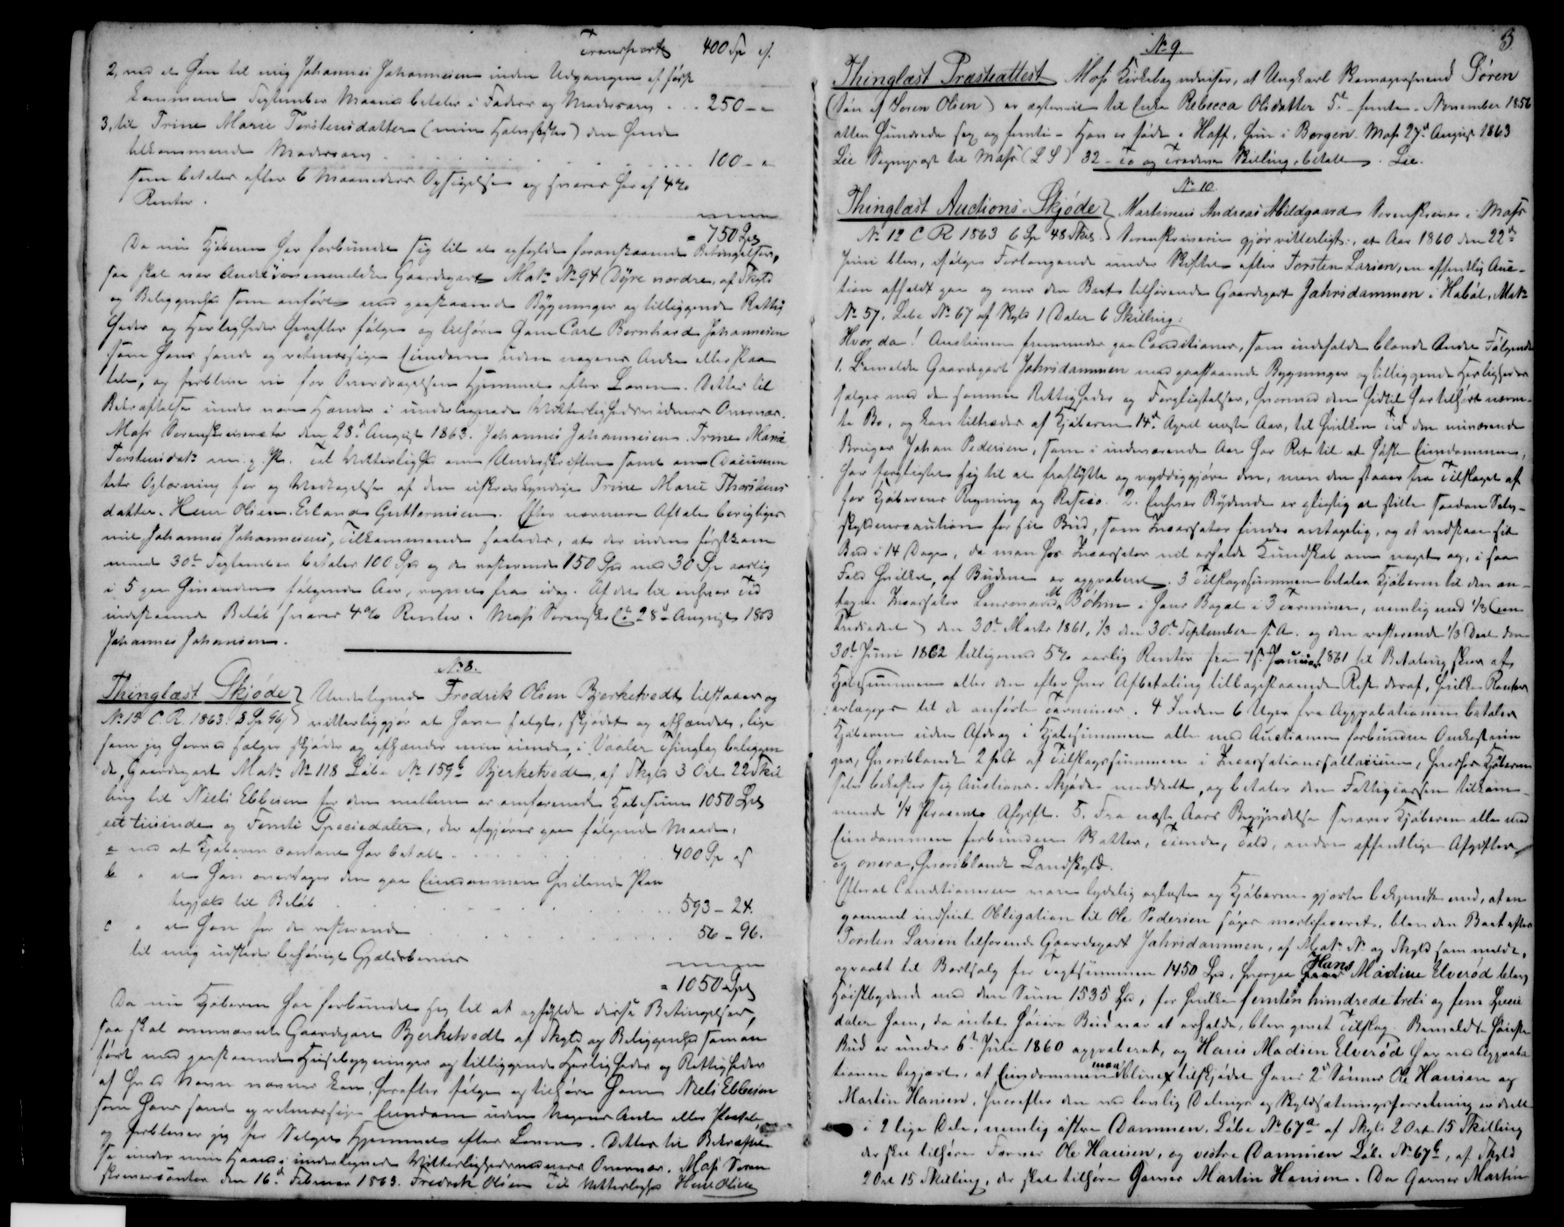 Transport 400 Sp „
2, ved at han til mig Johannes Johannesen inden Udgangen af først
kommende September Maaned betaler i Fader og Modersarv . . 250 – „
3, til Trine Marie Torstensdatter (min Halvsøster) den hende
tilkommende Modersarv . . . 100 – „
som betales efter 6 Maaneders Opsigelse og svares heraf 4 %
Renter.
= 750 Spd
Da nu Kjøberen har forbundet sig til at opfylde foranstaaende Betingelser,
saa skal nævnte Gaardepart Matr. No 94 Dyre nordre, af Skyld
og Beliggenhed som anført med paastaaende Bygninger og tilliggende Rettig
heder og Herligheder herefter følge og tilhøre ham Carl Bernhard Johannesen
som hans sande og retmæssige Eiendom uden nogens Anke eller Paa
tale, og forbliver vi for Overdragelsen Hjemmel efter Loven. Dette til
Bekræftelse under vore Hænder i undertegnede Vitterlighedsvidners Overvær.
Moss Sorenskriverctr den 28de August 1863. Johannes Johannesen. Trine Marie
Torstensdatr m. p. P. Til Vitterlighed om Underskriften samt om Documen
tets Oplæsning for og Vedtagelse af den uskrivekyndige Trine Marie Thorstens
datter. Henr Olsen. Erland Guttormsen. Efter nærmere Aftale berigtiges
mit Johannes Johannesens, Tilkommende saaledes, at der inden førstkom
mende 30te September betales 100 Spd og de resterende 150 Spd med 30 Sp aarlig
i 5 paa hinanden følgende Aar, regnet fra idag. Af det til enhver Tid
indestaaende Beløb svares 4 % Renter. Moss Sorenskr Ctr 28de August 1863
Johannes Johansen.
No 8.
Thinglæst Skjøde } Undertegnede Fredrik Olsen Bjerketvedt tilstaaer og
No 15 C R 1863 8 Sp 96 } vitterliggjør at have solgt, skjødet og afhændet, lige
som jeg herved sælger skjøder og afhænder min eiende, i Vaaler Thinglag beliggen
de, Gaardepart Matr No 118 Løbe No 159b Bjerketvedt, af Skyld 3 Ort 22 Skil
ling til Niels Ebbesen for den mellem os omforenede Kjøbesum 1050 Spd
et tusinde og Femti Speciedaler, der afgjøres paa følgende Maade:
a ved at Kjøberen contant har betalt . . . 400 Sp „
b „ at han overtager den paa Eiendommen hvilende Pan
tegjæld til Beløb . . . 593 – 24.
c „ at han for de resterende . . . 56 – 96.
til mig udsteder behørigt Gjældsbeviis
= 1050 Spd
Da nu Kjøberen har forbundet sig til at opfylde disse Betingelser,
saa skal ommeldte Gaardepart Bjerketvedt af Skyld og Beliggenhed som an
ført med paastaaende Huusebygninger og tilliggende Herligheder og Rettigheder
af hvad Navn nævnes kan herefter følge og tilhøre ham Niels Ebbesen
som hans sande og retmæssige Eiendom uden Nogens Anke eller Paatale,
og forbliver jeg for Salget Hjemmel efter Loven. Dette til Bekræftel
se under min Haand i undertegnede Vitterlighedsvidners Overvær. Moss Soren
skrivercontor den 16de Februar 1863. Fredrik Olsen Til Vitterlighed Henr Olsen
3
No 9.
Thinglæst Præsteattest Moss Kirkebog udviser, at Ungkarl Skomagersvend Søren
(Søn af Soren Olsen) er ægteviet til Enke Rebecca Olsdatter 5te – femte – November 1856
atten hundrede sex og femti – Han er født i Hoff, hun i Borgen. Moss 27de August 1863
Lie Sognepræst til Moss (L S) 32 – to og Tredeve Skilling betalt. Lie.
No 10.
Thinglæst Auctions-Skjøde } Martinus Andreas Mildgaard Sorenskriver i Moss
No 12 C R 1863 6 Sp 48 Skil } Sorenskriverie gjør vitterligt:, at Aar 1860 den 22de
Juni blev, ifølge Forlangende under Skiftet efter Torsten Larsen, en offentlig Auc-
tion afholdt paa og over den Boet tilhørende Gaardepart Jahrsdammen i Hobøl, Matr
No 57. Løbe No 67 af Skyld 1 Daler 6 Skilling:
Hvor da! Auctionen fremmedes paa Conditioner, som indeholde blandt Andet Følgende
1. Bemeldte Gaardepart Jahrsdammen med paastaaende Bygninger og tilliggende Herligheder
sælges med de samme Rettigheder og Forpligtelser, hvormed den hidtil har tilhørt nævn-
te Bo, og kan tiltrædes af Kjøberen 14de April næste Aar, til hvilken Tid den nuværende
Bruger Johan Pedersen, som i indeværende Aar har Ret til at høste Eiendommen,
har forpligtet sig til at fraflytte og ryddiggjøre den, men den staaer fra Tilslaget af
for Kjøberens Regning og Risico. 2. Enhver Bydende er pligtig at stille saadan Selv-
skyldnercaution for sit Bud, som Incassator finder antagelig, og at vedstaae sit
Bud i 14 Dage, da man hos Incassator vil erholde Kundskab om noget og, i saa
Fald hvilket, af Budene er approberet. 3 Tilslagssummen betaler Kjøberen til den an-
tagne Incassator Lensmand M Bøhm i hans Bopæl i 3 Terminer, nemlig med 1/3 (een
Trediedeel) den 30te Marts 1861, 1/3 den 30te September s. A. og den resterende 1/3 Deel den
30te Juni 1862 tilligemed 5 % aarlig Renter fra 1ste Januar 1861 til Betaling skeer af
Kjøbesummen eller den efter hver Afbetaling tilbagestaaende Rest deraf, hvilke Renter
erlægges til de anførte Terminer. 4 Inden 6 Uger fra Approbationen betaler
Kjøberen uden Afdrag i Kjøbesummen alle med Auctionen forbundne Omkostnin
ger, hvoriblandt 2 pCt af Tilslagssummen i Incassationssallarium, hvorhos Kjøberen
selv bekoster sig Auctions-Skjøde meddeelt, og betaler den Fattigcassen tilkom-
mende 1/4 Procents Afgift. 5. Fra næste Aars Begyndelse svarer Kjøberen alle med
Eiendommen forbundne Skatter, Tiende, Told, andre offentlige Afgifter
og onera, hvoriblandt Landskyld.
Efterat Conditionerne vare lydelig oplæste og Kjøberen gjorte bekjendt med, at en
gammel indfriet Obligation til Ole Pedersen søges mortificeret, blev den Boet efter
Torsten Larsen tilhørende Gaardepart Jahrsdammen, af Matr No og Skyld som meldt,
opraabt til Bortsalg for Taxtsummen 1450 Spd, hvorpaa Hans Madsen Elverød blev
Høistbydende med den Sum 1535 Spd, for hvilke femten hundrede treti og fem Specie
daler ham, da intet høiere Bud var at erholde, blev givet Tilslag. Bemeldte høieste
Bud er under 6te Juli 1860 approberet, og Hans Madsen Elverød har ved Approba
tionen begjært, at Eiendommen maa blive tilskjødet hans 2de Sønner Ole Hansen og
Martin Hansen, hvorefter den ved lovlig Delings og Skyldsætningsforretning er deelt
i 2 lige Dele, nemlig østre Dammen, Løbe No 67a af Skyld 2 Ort 15 Skilling
der skal tilhøre Farver Ole Hansen, og vestre Dammen Løbe No 67b, af Skyld
2 Ort 15 Skilling, der skal tilhøre Garver Martin Hansen. Da Garver Martin